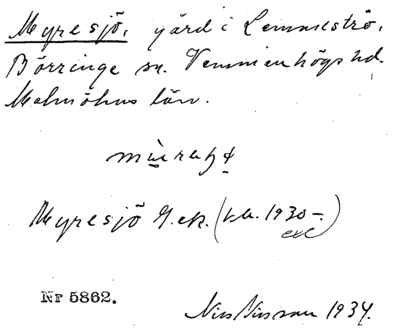 Myresjö, gård i Lemmeströ,
Börringe sn. Vemmenhögs hd.
Malmöhus län.
Myresjö G.ek. (t.a. 1930-.
Nr 5862.
Nils Nilsson 1934.